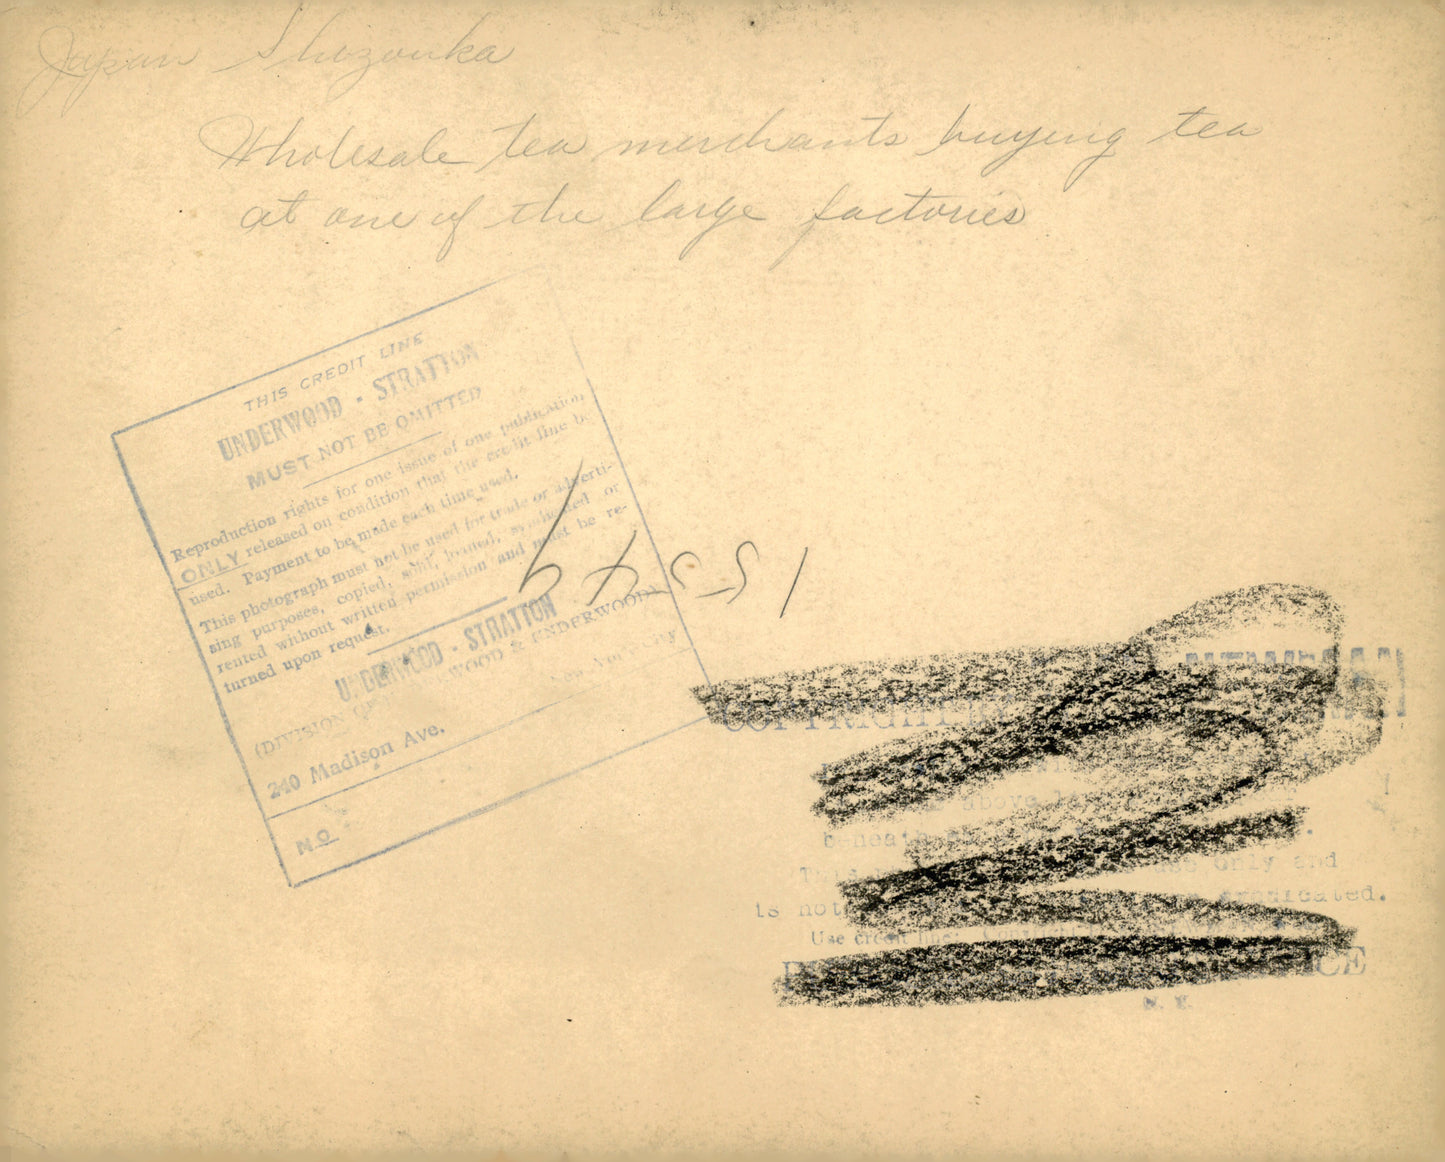 Japan Shozouka
Wholesale tea merchants buying tea
at one of the large factories
THIS CREDIT LINE
UNDERWOOD - STRATTON
MUST NOT BE OMITTED
Reproduction rights for one issue of one publication
ONLY released on condition that the credit line be
used. Payment to be made each time used.
This photograph must not be used for trade or adverti-
sing purposes, copied, sold, loaned, syndicated or
rented without written permission and must be re-
turned upon request.
UNDERWOOD - STRATTON
(DIVISION WOOD & UNDERWOOD)
240 Madison Ave. New York City
NO.
COPYRIGHT
above
beneath
This only and
is not syndicated.
Use credit line
N. Y.